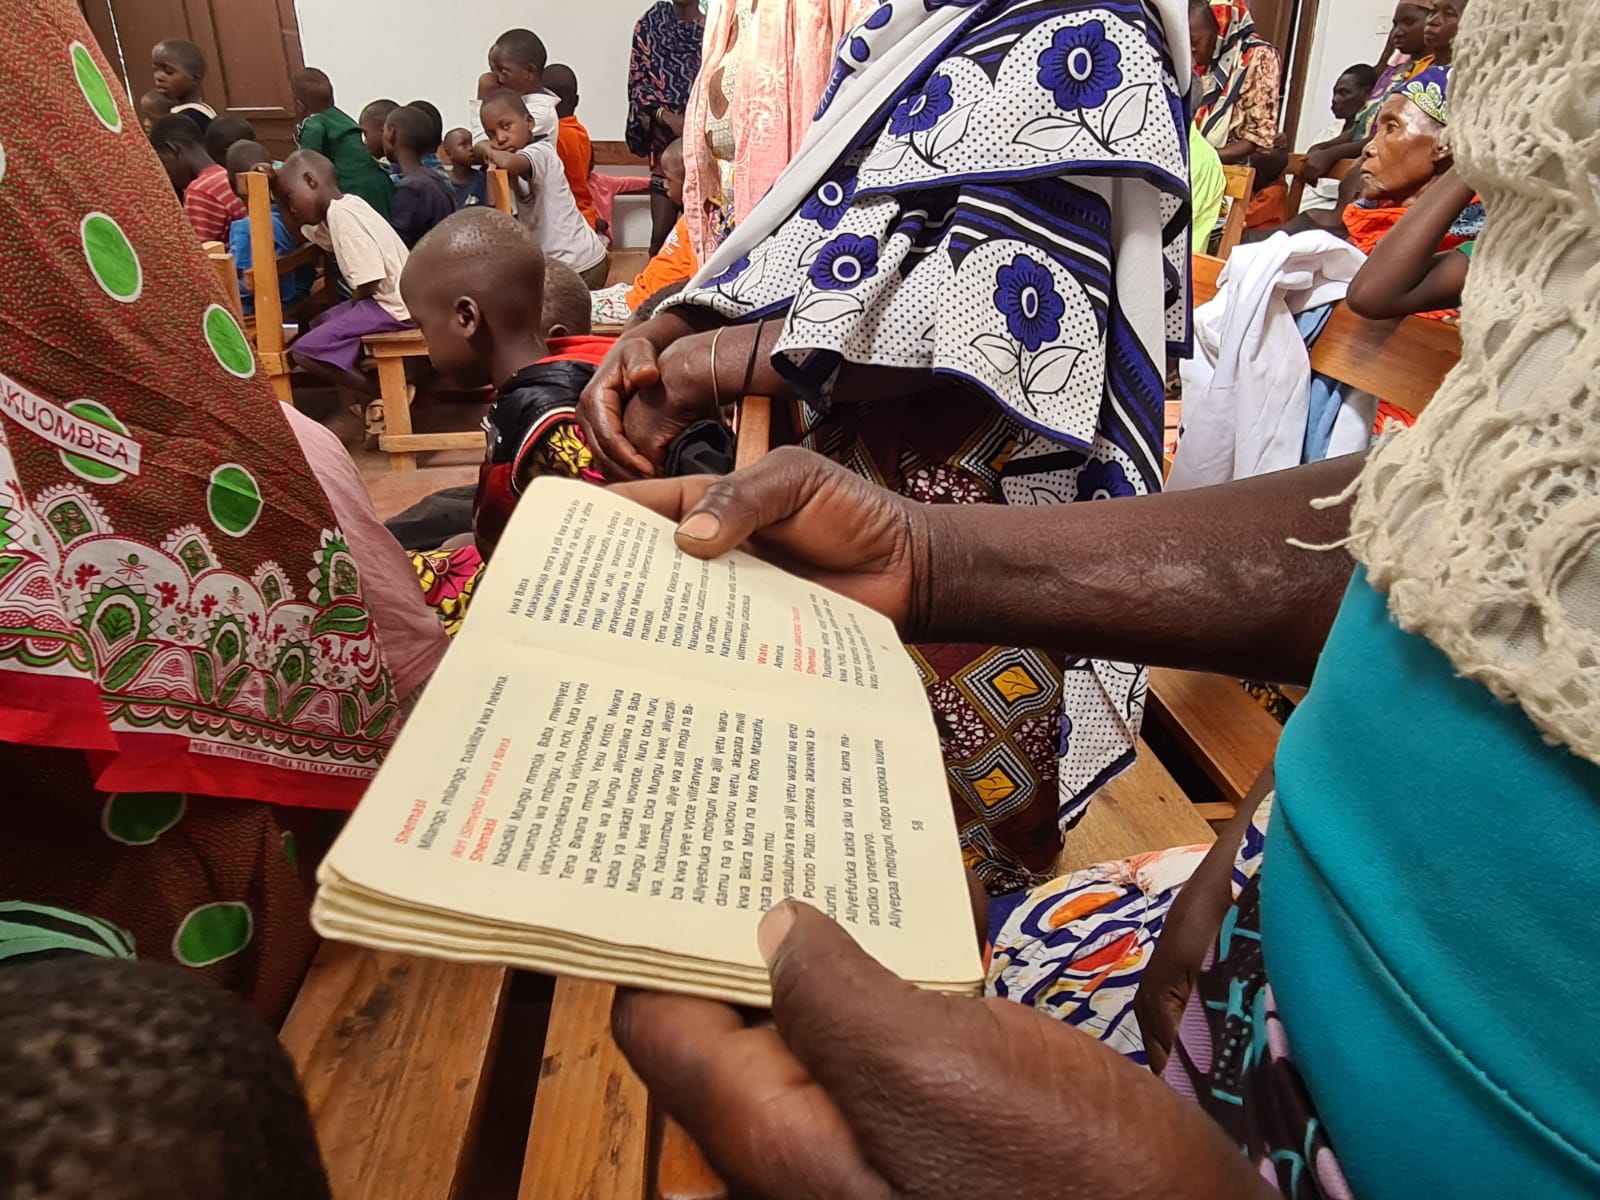 Shemasi
Milango, milango, tusikilize kwa hekima.
Ikiri (Simvolo) Imani ya Nikea.
Shemasi
Nasadiki Mungu mmoja, Baba, mwenyezi,
mwumba wa mbingu, na nchi, hata vyote
vinavyoonekana na visivyoonekana.
Tena Bwana mmoja, Yesu Kristo, Mwana
wa pekee wa Mungu aliyezaliwa na Baba
kabla ya wakati wowote. Nuru toka nuru,
Mungu kweli toka Mungu kweli, aliyezali-
wa, hakuumbwa, aliye wa asili moja na Ba-
ba kwa yeye vyote vilifanywa.
Aliyeshuka mbinguni kwa ajili yetu wana-
damu na ya wokovu wetu, akapata mwili
kwa Bikira Maria na kwa Roho Mtakatifu,
hata kuwa mtu.
yesulubiwa kwa ajili yetu wakati wa enzi
Pontio Pilato, akateswa, akawekwa ka-
burini.
Aliyefufuka katika siku ya tatu, kama ma-
andiko yanenavyo.
Aliyepaa mbinguni, ndipo anapokaa kuume
58
kwa Baba.
Atakayekuja mara ya pili kwa utukufu ku-
wahukumu waliohai na wafu, na ufalme
wake hautakuwa na mwisho.
Tena nasadiki Roho Mtakatifu, ni Bwana ni
mpaji wa uhai, anayetoka kwa Baba
anayesujudiwa na kutukuzwa pamoja na
Baba na Mwana, aliyenena kwa vinywa vya
manabii.
Tena nasadiki Ekklesia moja,
tholiki na la Mitume.
Naungama ubatizo mmoja
ya dhambi.
Natumaini ufufuo wa wafu, na uzima wa
ulimwengu utakaokuja.
Watu
Amina.
SADAKA
Shemasi
Tusimame wima
kwa hofu, tuangalie
Watu
AKUOMBEA
TANZANIA